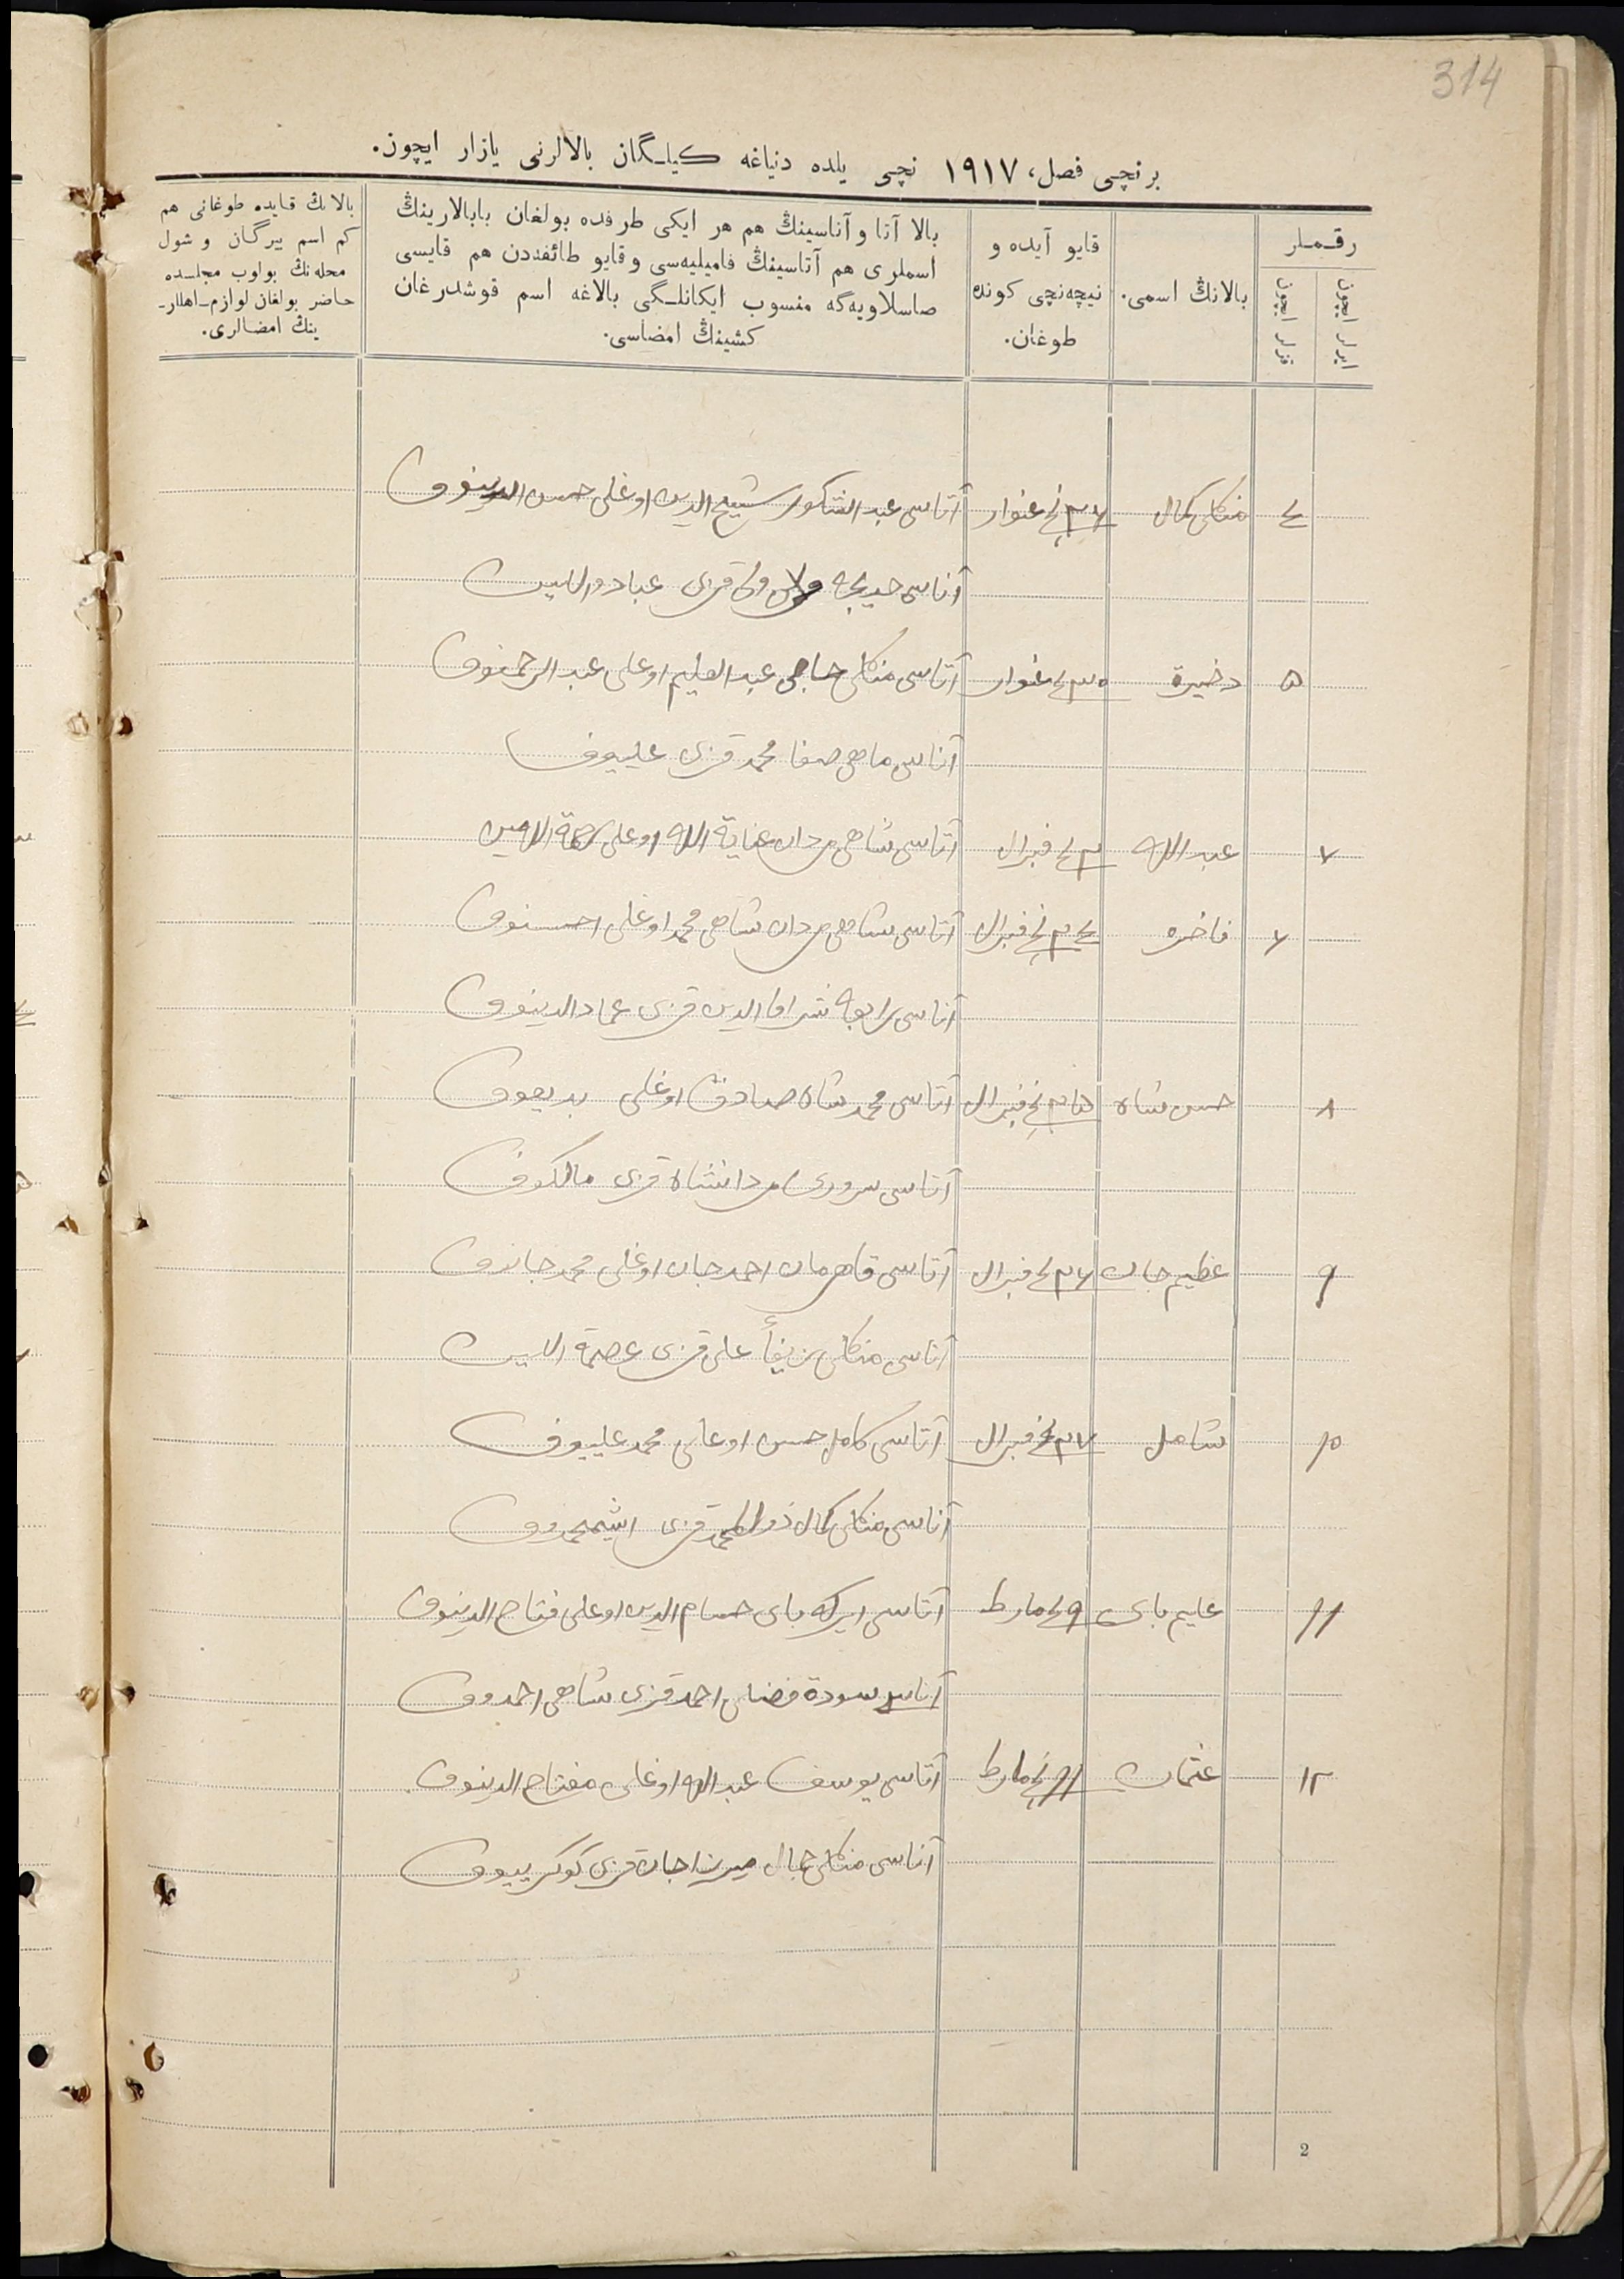 314
برنچی فصل، ١٩١٧ نچی یلده دنیاغه کیلگان بالالرنی یازار ایچون.
رقملر
ایرلر ایچون
قزلر ایچون
بالانڭ اسمی.
قایو آیده و
نیچه‌نچی کونده
طوغان.
بالا آتا و آناسینڭ هم هر ایکی طرفده بولغان بابالارینڭ
اسملری هم آتاسینڭ فامیلیه‌سی و قایو طائفه‌دن هم قایسی
صاسلاویه‌گه منسوب ایکانلگی بالاغه اسم قوشدرغان
کشینڭ امضاسی.
بالانڭ قایده طوغانی هم
کم اسم بیرگان و شول
محله‌نڭ بولوب مجلسده
حاضر بولغان لوازم اهللار-
ینڭ امضالری.
منکلی کمال ٢٦ نچی غنوار آتاسی عبد الشکور شیخ الدین اوغلی حسن الدینوف
آناسی خدیجه ولی قزی
٥ ذخیرة ٣٠ نچی غنوار آتاسی منکلی حاجی عبد العلیم اوغلی عبد الرحمنوف
آناسی ماهی صفا محمد قزی علییوف
٧ عبد الله ٣ نچی فبرال آتاسی شاهی مردان عنایة الله اوغلی
٦ فاخره نچی فبرال آتاسی شاهی مردان شاهی محمد اوغلی احسنوف
آناسی رابعه شرف الدین قزی عماد الدینوف
٨ حسن شاه ٢٥ نچی فبرال آتاسی محمد شاه صادق اوغلی بدیعوف
آناسی سروری مردانشاه قزی مالکوف
٩ عظیم جان ٢٦ نچی فبرال آتاسی قاهرمان احمد جان اوغلی محمد جانوف
آناسی منکلی زیفأ علی قزی
١٠ شامل ٢٧ نچی فبرال آتاسی کامل حسن اوغلی محمد علییوف
آناسی منکلی کمال قزی ایشمحمدوف
١١ علیم بای ٩ نچی مارط آتاسی ایرکه بای حسام الدین اوغلی فتاح الدینوف
آناسی سوده فضلی احمد قزی شاهی احمدوف
١٢ عثمان ١١ نچی مارط آتاسی یوسف عبد الله اوغلی مفتاح الدینوف
آناسی منکلی جمال میرزاجان قزی
2